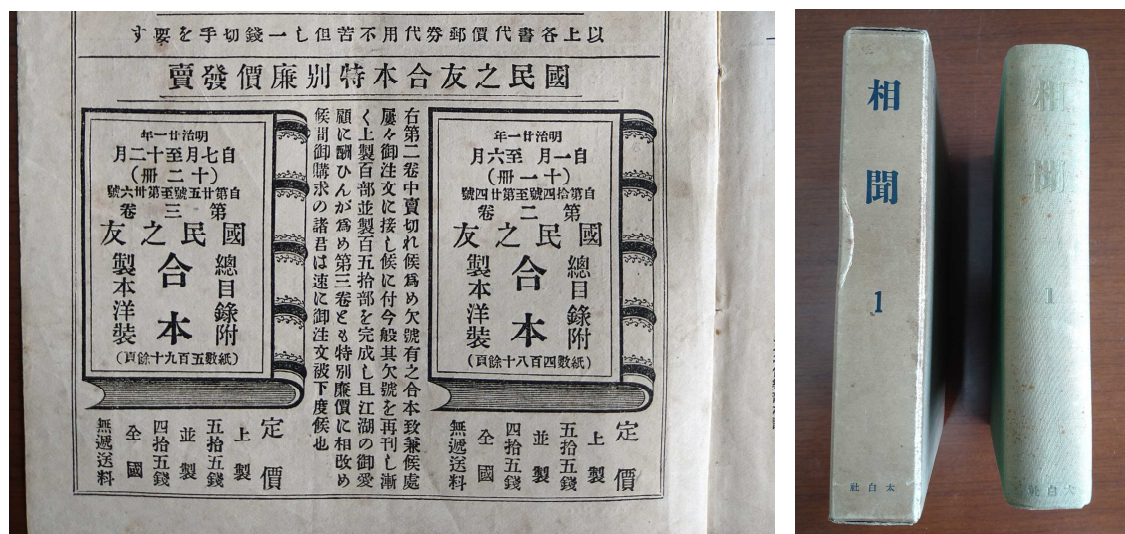 以上各書代價郵券代用不苦但し一錢切手を要す
國民之友合本特別廉價發賣
明治廿一年
自一月至六月
(十一冊)
自第拾四號至第廿四號
第二卷
國民之友
總目錄附
合本
製本洋裝
(紙數四百八十餘頁)
定價
上製
五拾五錢
並製
四拾五錢
全國
無遞送料
右第二卷中賣切れ候爲め欠號有之合本致兼候處
屢々御注文に接し候に付今般其欠號を再刊し漸
く上製百部並製百五拾部を完成し且江湖の御愛
顧に酬ひんが爲め第三卷とも特別廉價に相改め
候間御購求の諸君は速に御注文被下度候也
明治廿一年
自七月至十二月
(十二冊)
自第廿五號至第卅六號
第三卷
國民之友
總目錄附
合本
製本洋裝
(紙數五百九十餘頁)
定價
上製
五拾五錢
並製
四拾五錢
全國
無遞送料
相聞
1
太白社
相聞
1
太白社